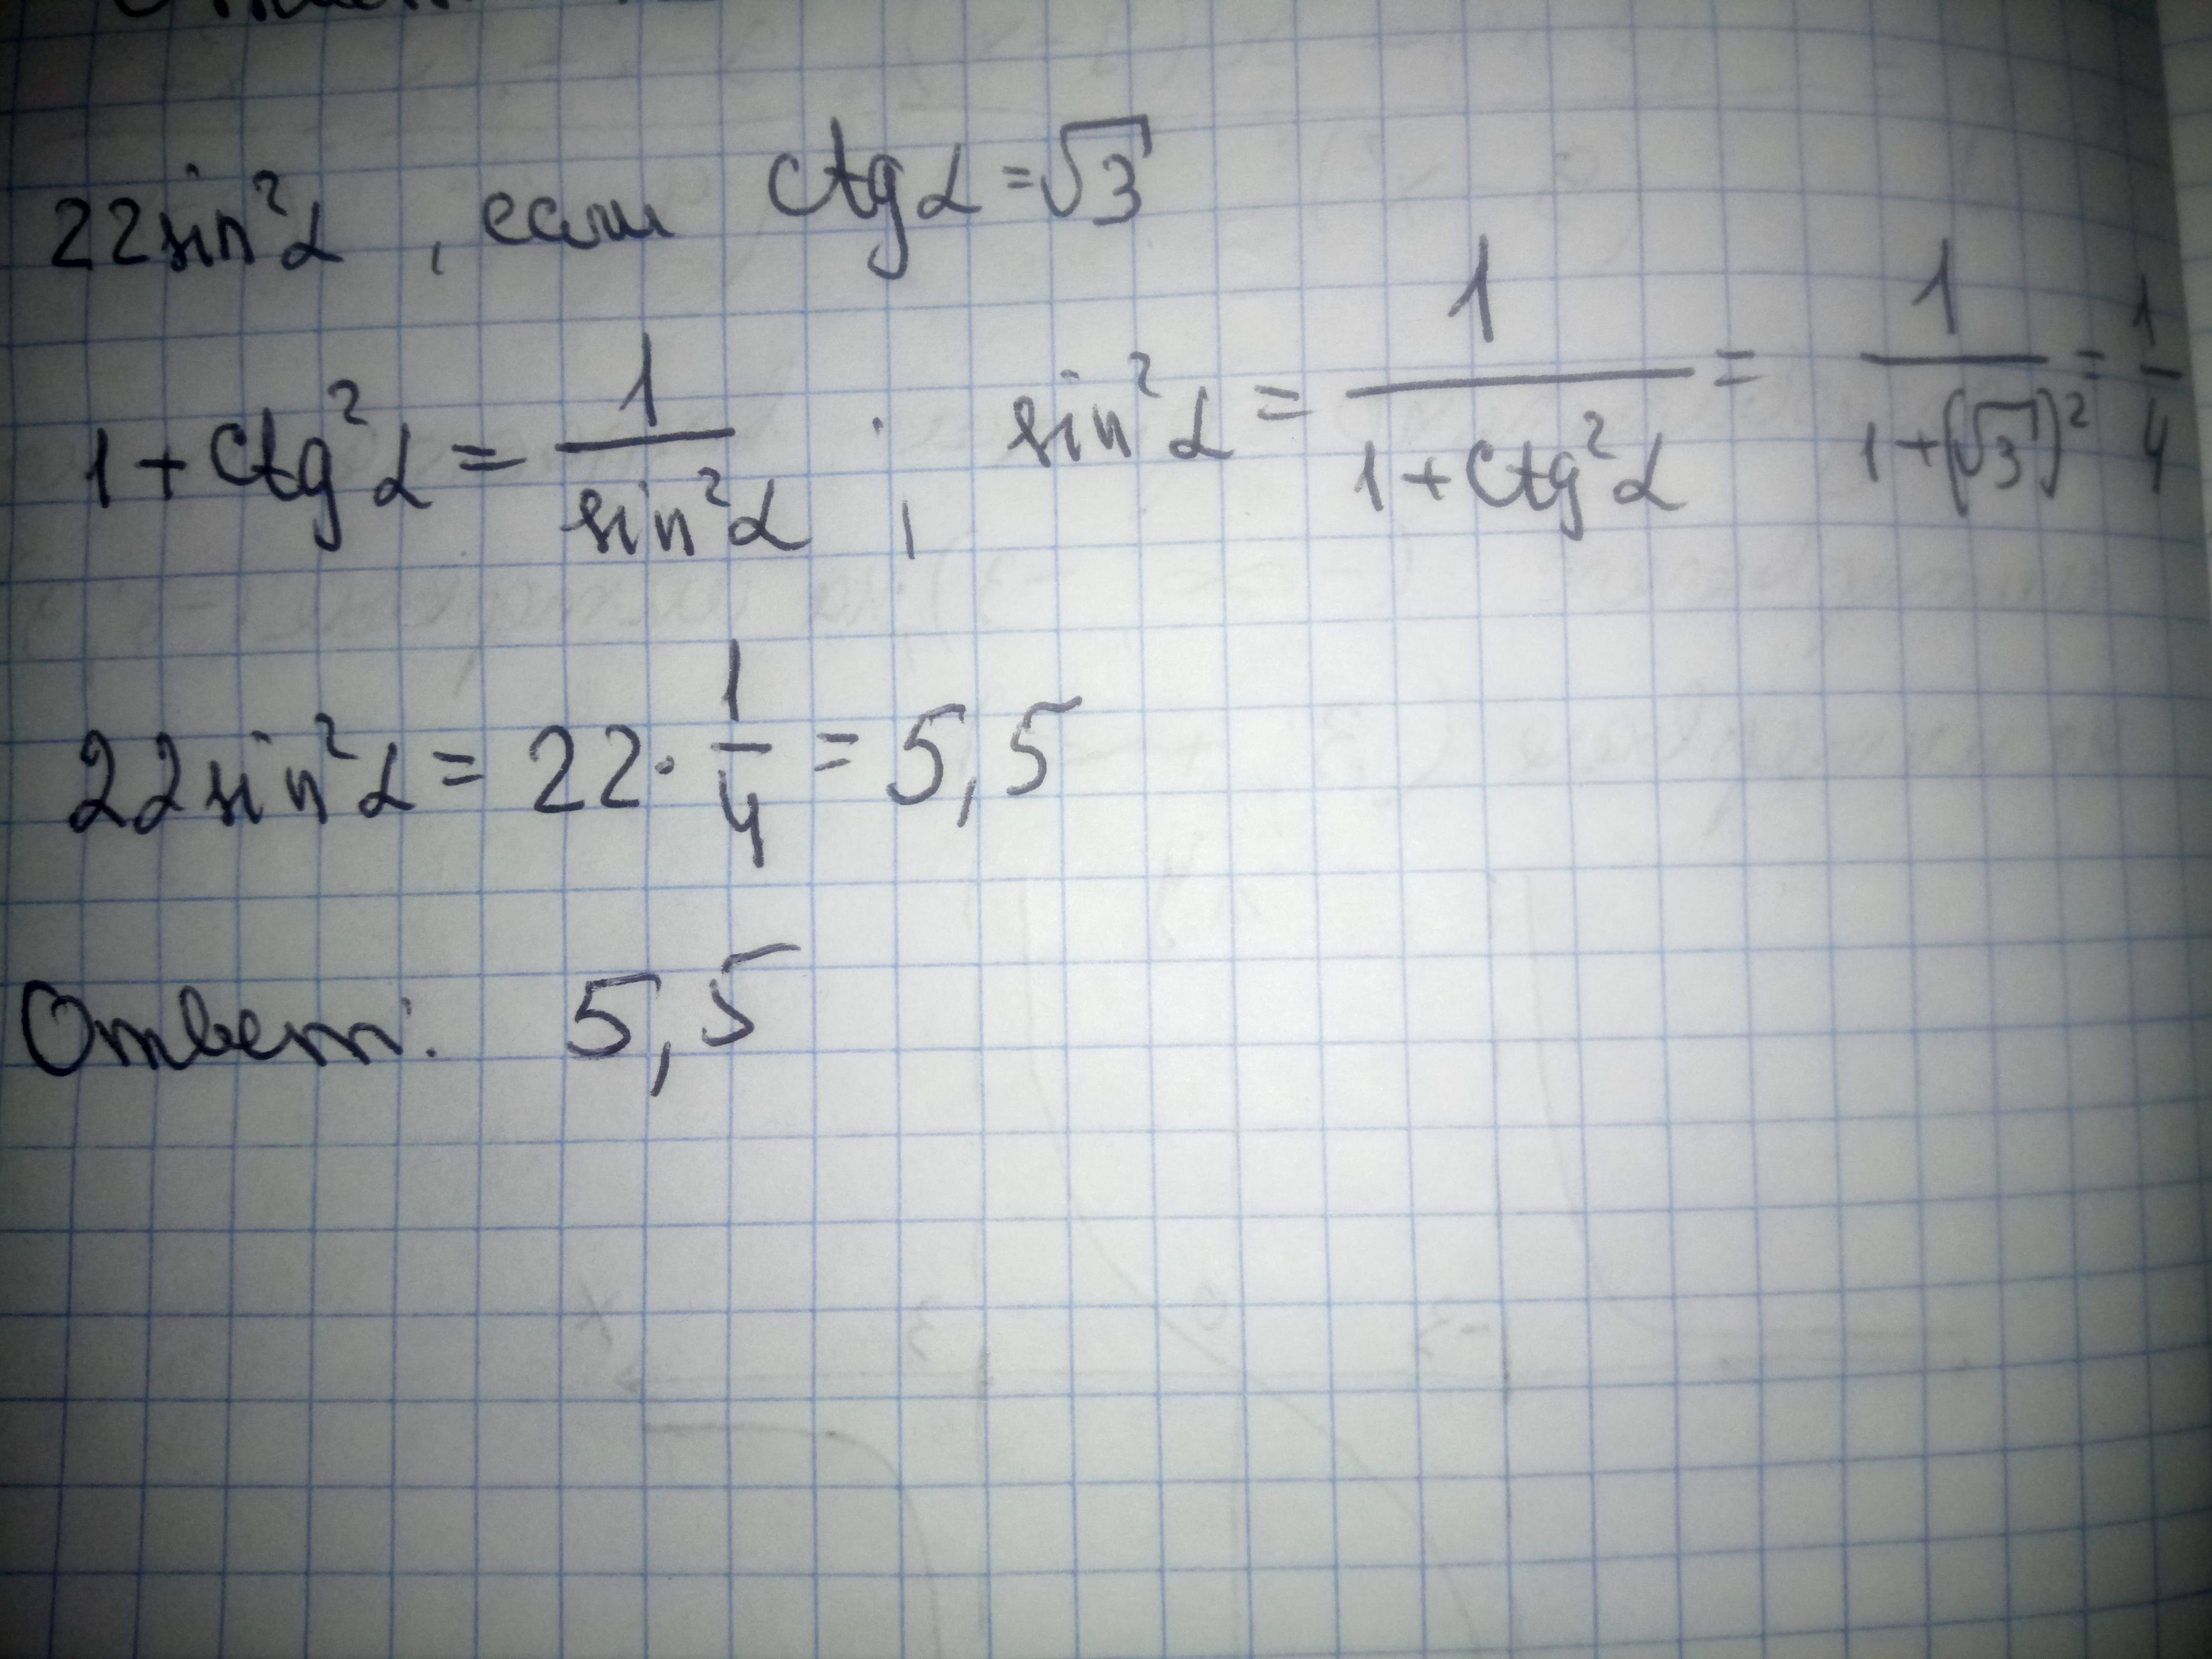 22sin²α, если ctgα=√3
1+ctg²α = 1/sin²α ; sin²α = 1/(1+ctg²α) = 1/(1+(√3)²) = 1/4
22sin²α = 22·1/4 = 5,5
Ответ: 5,5